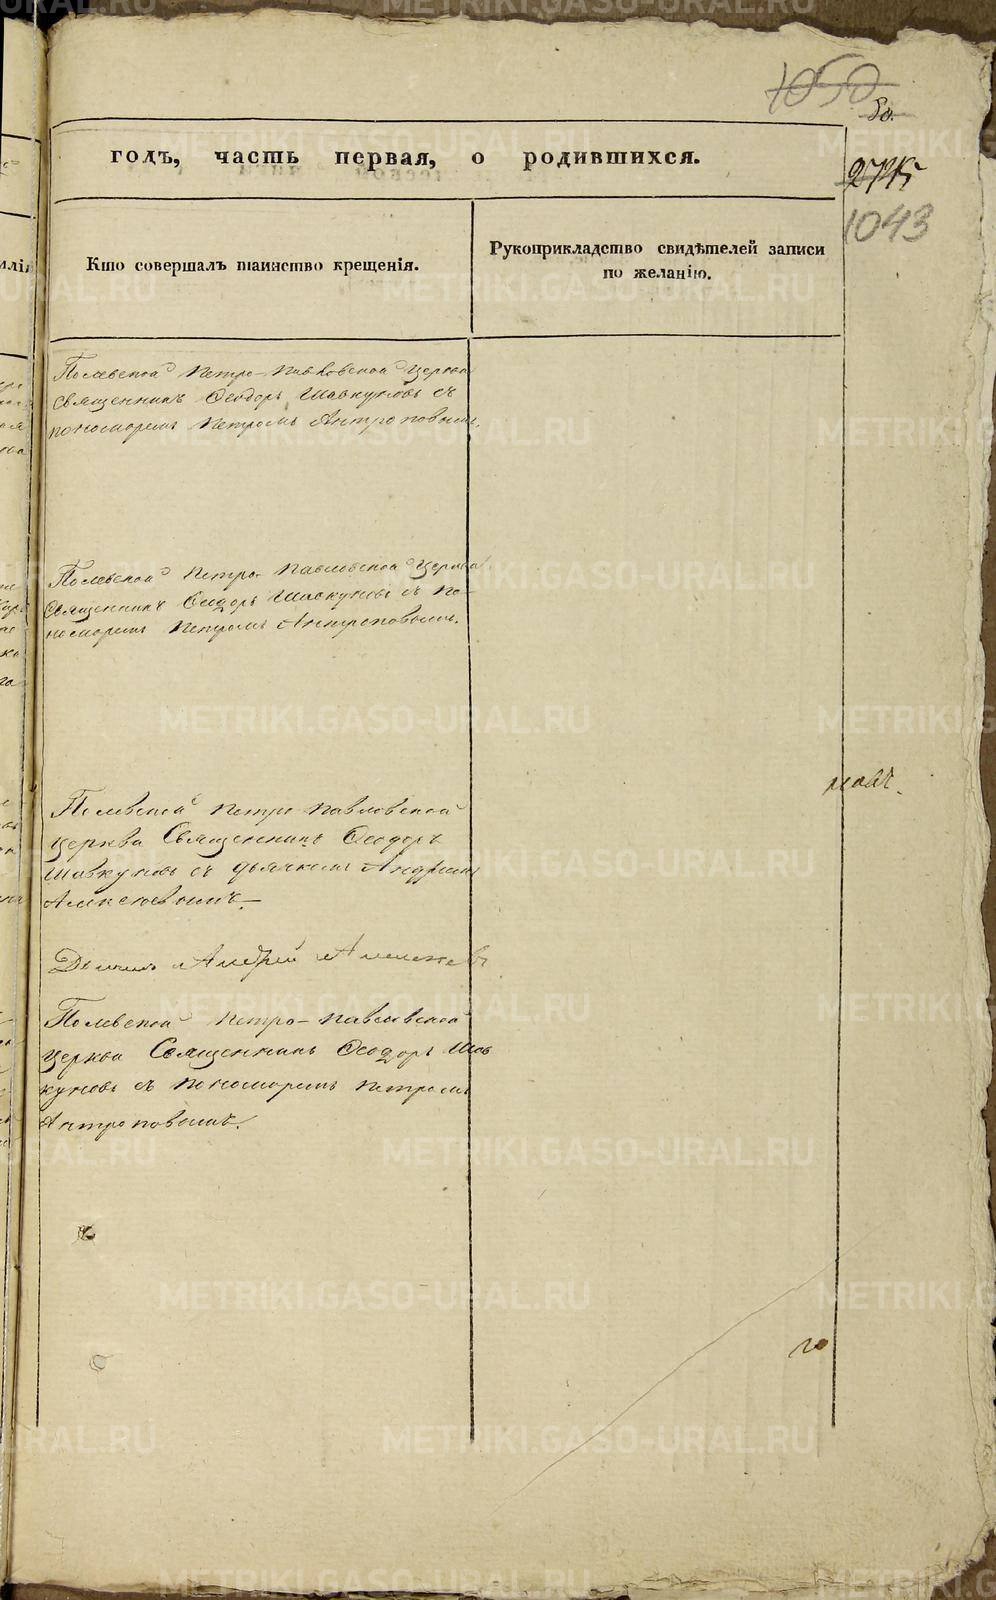 1050
50.
годъ, часть первая, о родившихся.
1043
Кто совершалъ таинство крещенія.
Рукоприкладство свидѣтелей записи
по желанію.
Полевской Петро-Павловской Церкви
Священникъ Ѳеодоръ Шавкуновъ съ
пономоремъ Петромъ Антроповымъ.
Полевской Петро-Павловской Церкви
Священникъ Ѳеодоръ Шавкуновъ съ По-
номоремъ Петромъ Антроповымъ.
Полевской Петро Павловской
Церкви Священникъ Ѳеодоръ
Шавкуновъ съ дьячкомъ Андреемъ
Алексеевымъ.
Андрей
Полевской Петро-Павловской
Церкви Священникъ Ѳеодоръ Шав
куновъ съ пономоремъ Петромъ
Антроповымъ.
METRIKI.GASO-URAL.RU